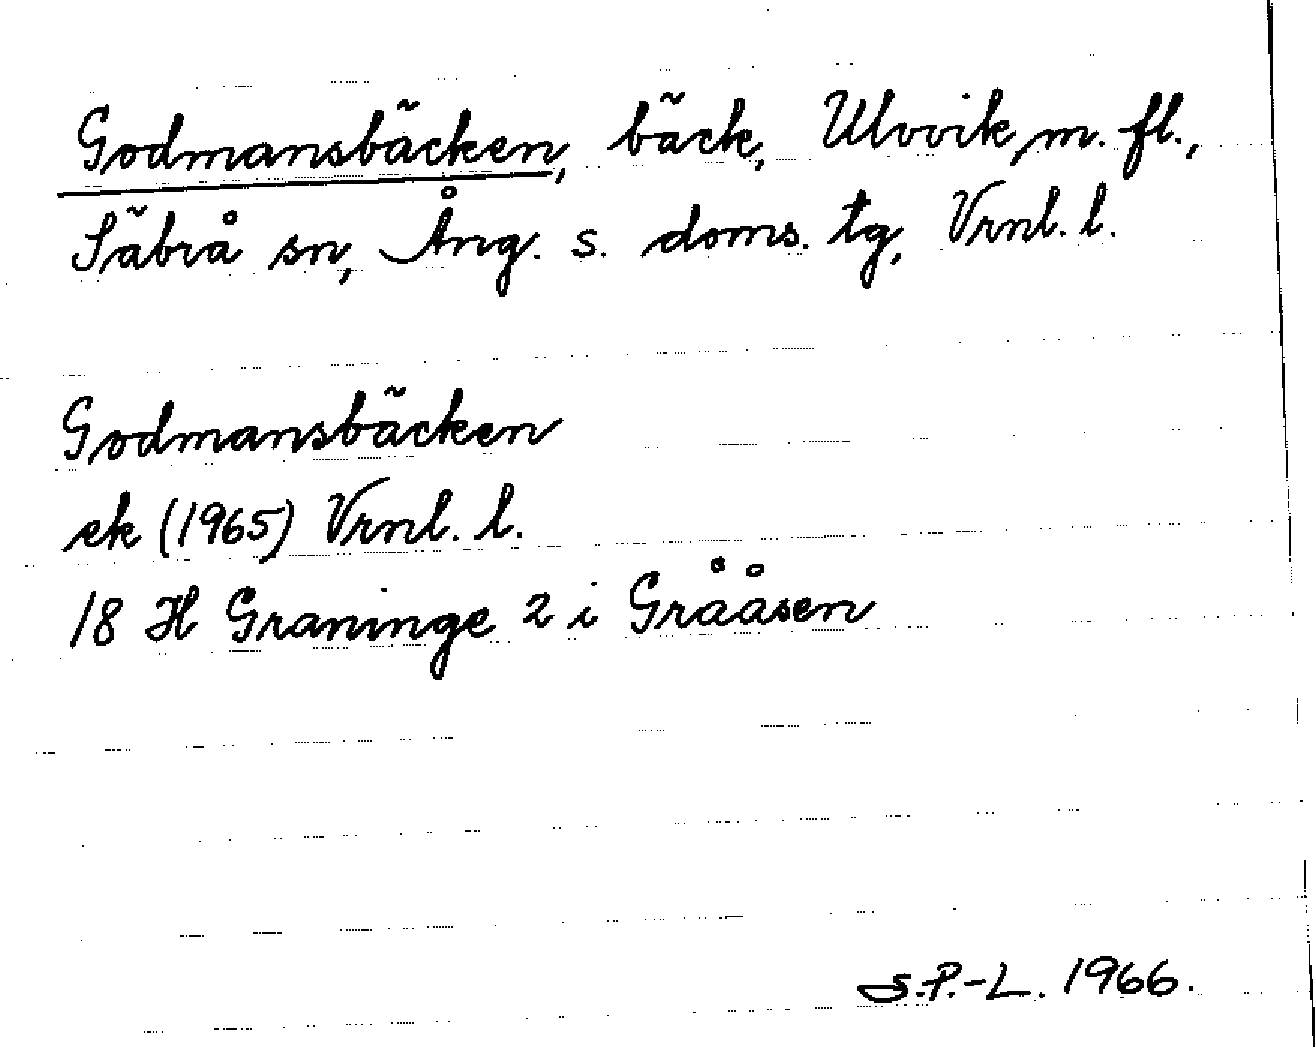 Godmansbäcken, bäck, Ulvvik, m. fl.,
Säbrå sn, Ång. s. doms. tg, Vrnl. l.
Godmansbäcken
ek (1965) Vrnl. l.
18 H Graninge 2 i Grååsen
S.P.-L. 1966.